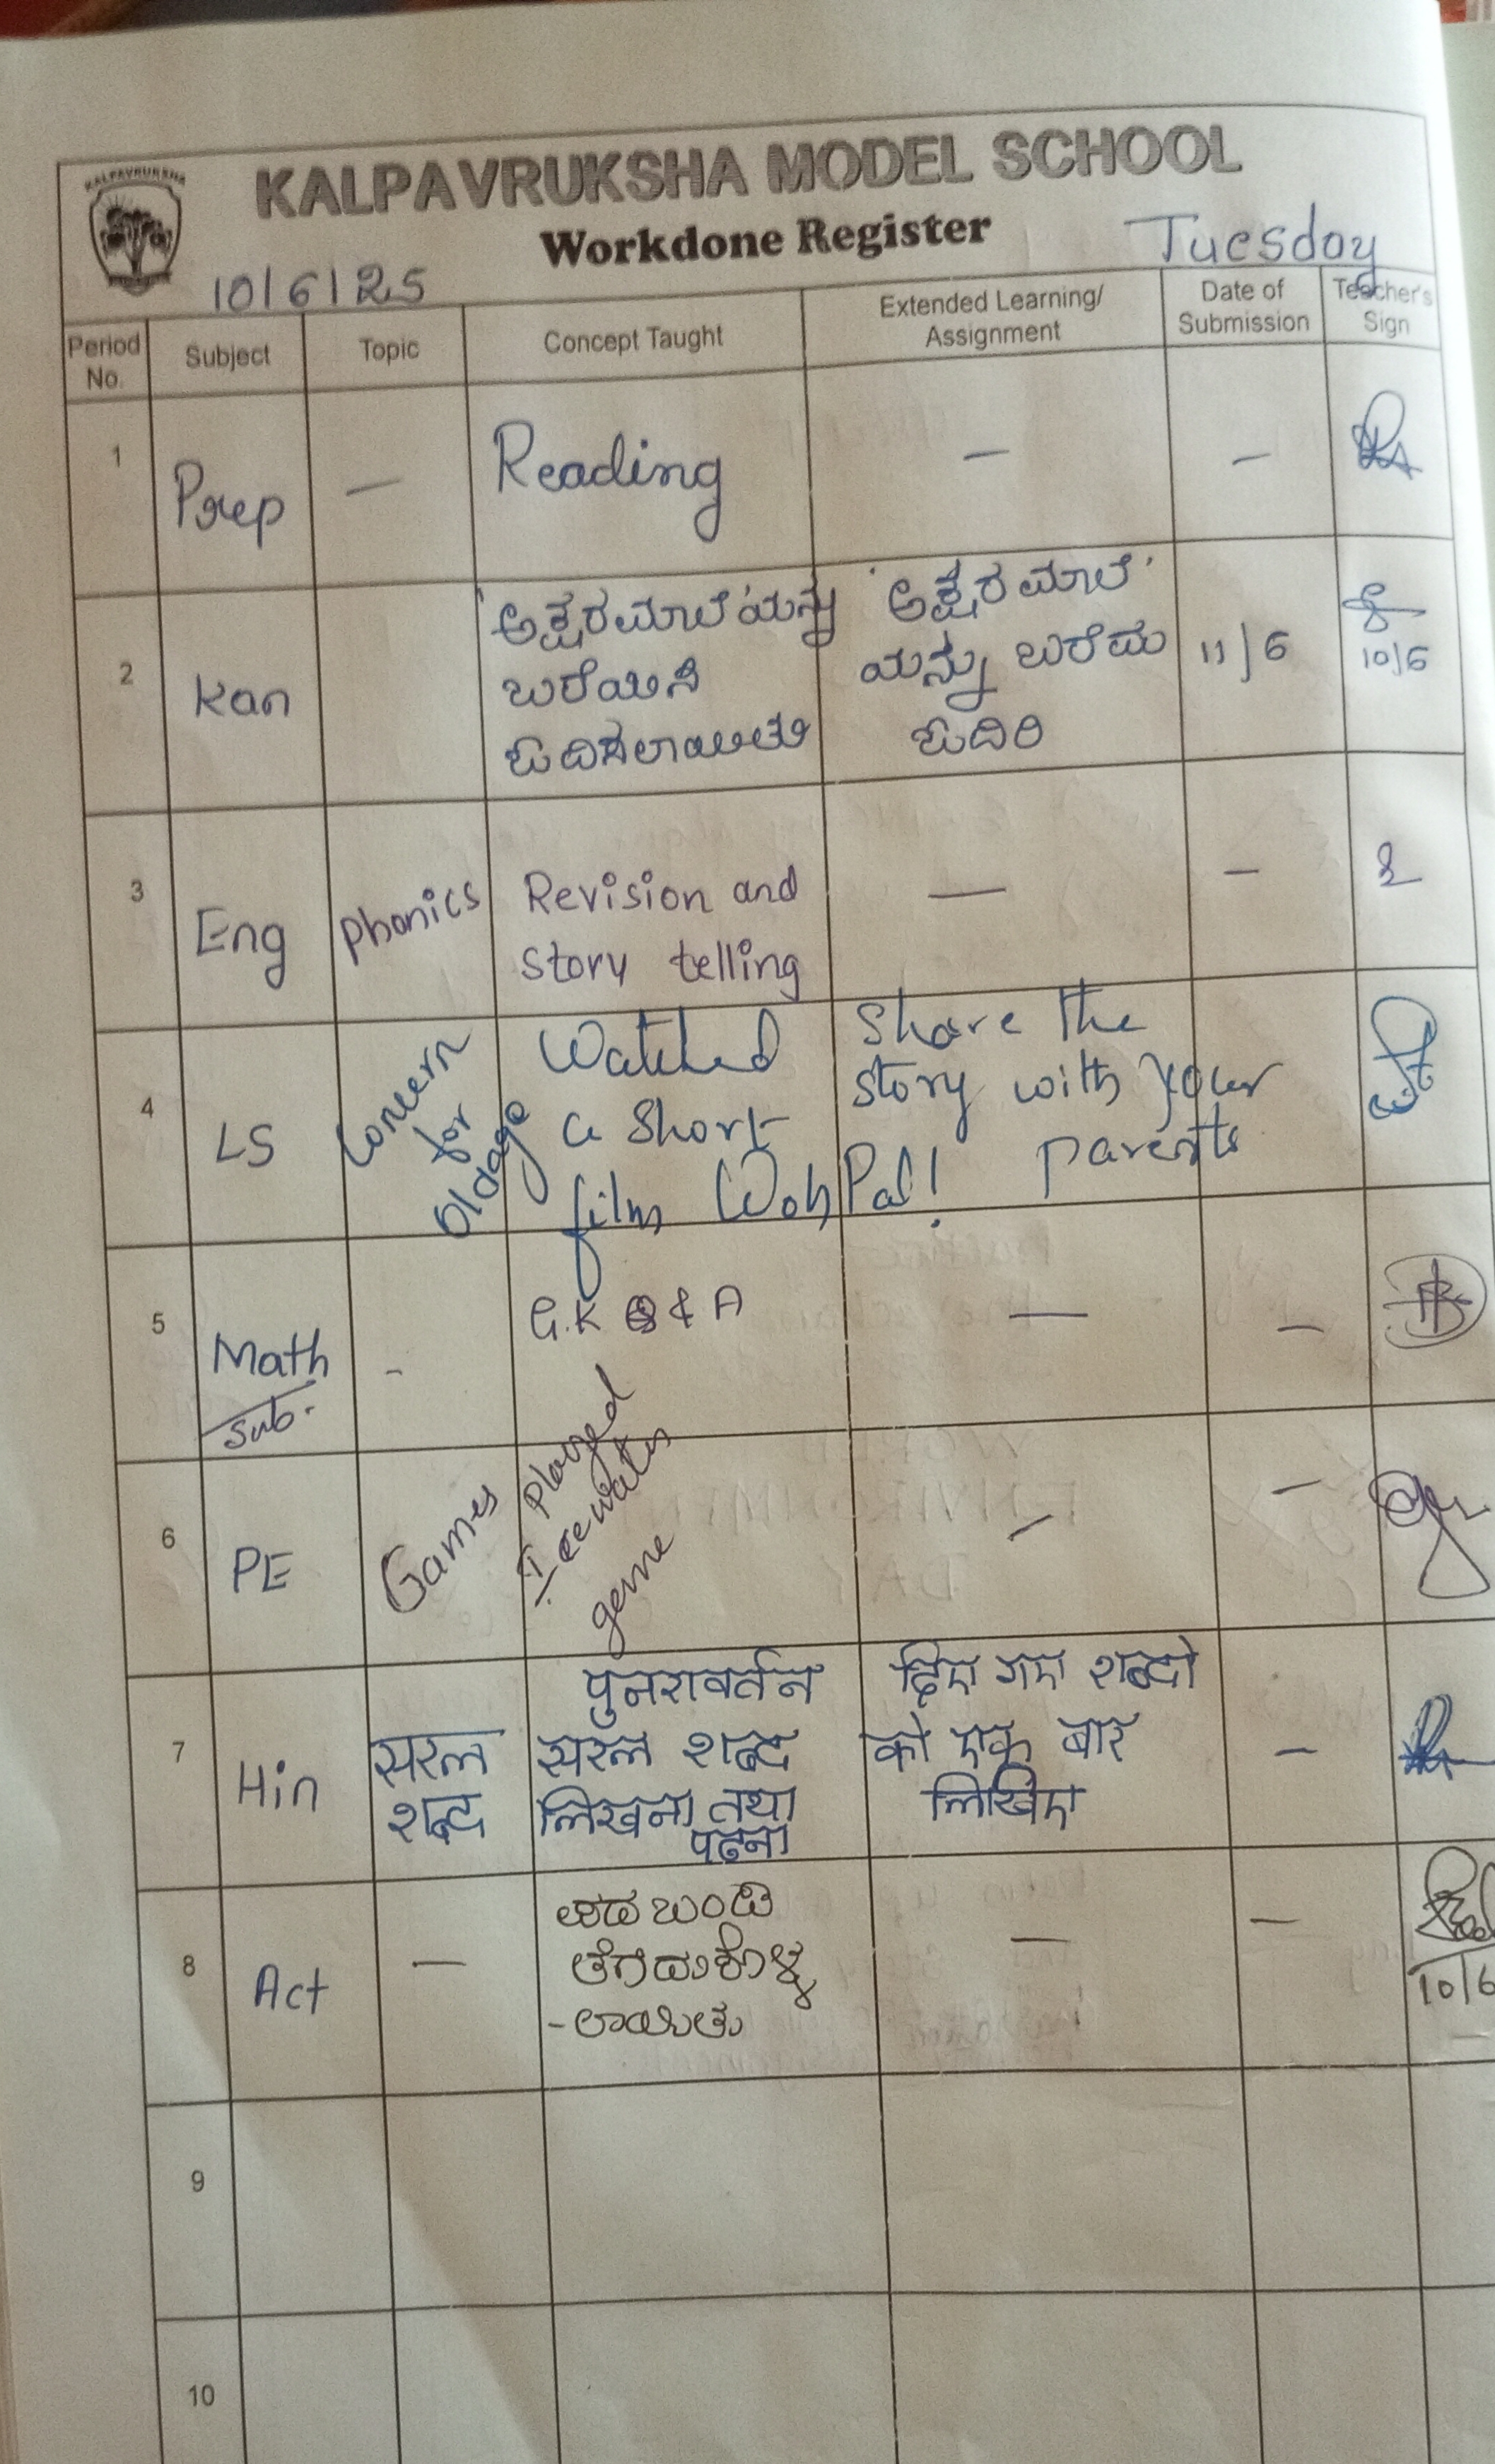 KALPAVRUKSHA
KALPAVRUKSHA MODEL SCHOOL
Workdone Register
10/6/25
Tuesday
Period No.
Subject
Topic
Concept Taught
Extended Learning/
Assignment
Date of
Submission
Teacher's
Sign
1
Prep
—
Reading
—
—
2
Kan
'ಅಕ್ಷರಮಾಲೆ'ಯನ್ನು
ಬರೆಯಿಸಿ
ಓದಿಸಲಾಯಿತು
'ಅಕ್ಷರಮಾಲೆ'
ಯನ್ನು ಬರೆದು
ಓದಿರಿ
11/6
10/6
3
Eng
Phonics
Revision and
story telling
—
—
4
LS
Concern
for
Oldage
Watched
a Short
film Woh Pal!
Share the
story with your
parents
5
Math
Sub.
-
G.K Q & A
—
—
6
PE
Games
Played
Ice water
geme
—
—
7
Hin
सरल
शब्द
पुनरावर्तन
सरल शब्द
लिखना तथा
पढना
दिए गए शब्दो
को एक बार
लिखिए
—
8
Act
—
ಪಡಬಂಡಿ
ತೆಗೆದುಕೊಳ್ಳ
-ಲಾಯಿತು
—
—
10/6
9
10